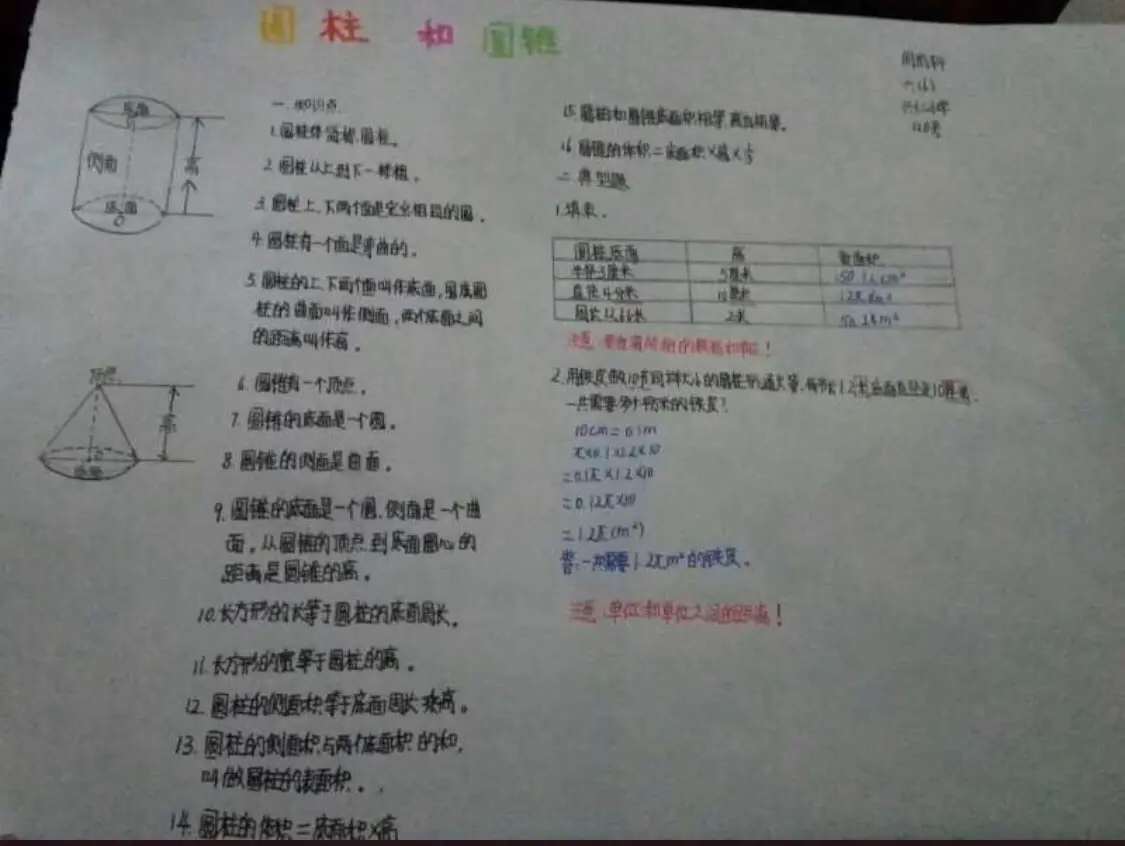 圆柱和圆锥
一.知识点
1.圆柱体简称圆柱。
2.圆柱从上到下一样粗。
3.圆柱上、下两个面是完全相同的圆。
4.圆柱有一个面是弯曲的。
5.圆柱的上下两个面叫作底面,围成圆
柱的曲面叫作侧面,两个底面之间
的距离叫作高。
6.圆锥有一个顶点。
7.圆锥的底面是一个圆。
8.圆锥的侧面是曲面。
9.圆锥的底面是一个圆,侧面是一个曲
面。从圆锥的顶点到底面圆心的
距离是圆锥的高。
10.长方形的长等于圆柱的底面周长。
11.长方形的宽等于圆柱的高。
12.圆柱的侧面积等于底面周长乘高。
13.圆柱的侧面积与两个底面积的和,
叫做圆柱的表面积。
14.圆柱的体积=底面积×高
底面
侧面
高
底面
O
顶点
高
O
底面
15.圆柱和圆锥底面积相等,高也相等。
16.圆锥的体积=底面积×高×⅓
二.典型题
1.填表。
圆柱底面 高 表面积
半径3厘米 5厘米
直径4分米
2米
注意:
2.用铁皮做10节同样大小的圆柱形通火管,每节长1.2米,底面直径是10厘米。
一共需要多少平方米的铁皮?
10cm=0.1m
π×0.1×1.2×10
=0.1π×1.2×10
=0.12π×10
=1.2π(m²)
答:一共需要1.2πm²的铁皮。
注意:单位和单位之间的距离!